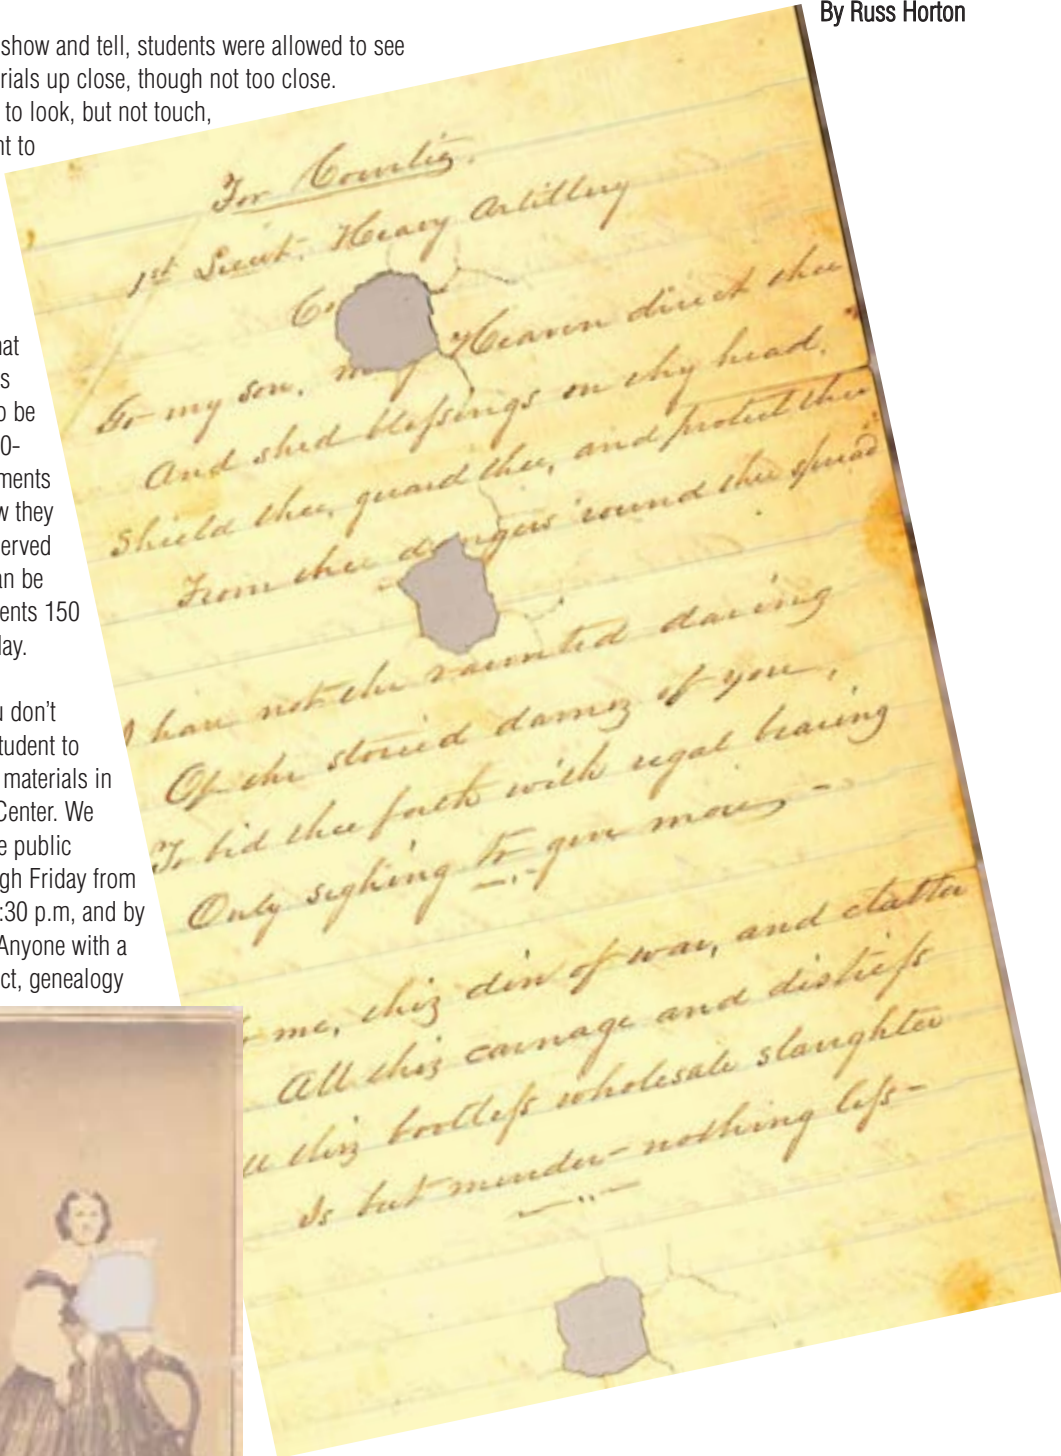 By Russ Horton
show and tell, students were allowed to see
rials up close, though not too close.
to look, but not touch,
nt to
hat
s
o be
0-
ments
w they
erved
an be
ents 150
lay.
u don't
tudent to
materials in
Center. We
e public
gh Friday from
:30 p.m, and by
Anyone with a
ct, genealogy
For
1st Lieut. Heavy Artillery
Co
To my son, may Heaven direct thee
And shed blessings on thy head.
Shield thee, guard thee, and protect thee
From thee dangers 'round thee spread
I have not the vaunted daring
Of the storied damez of yore,
To bid thee forth with regal bearing
Only sighing to
me, thiz din of war, and clatter
All thiz carnage and distress
ll thiz bootless wholesale slaughter
Is but murder - nothing less -